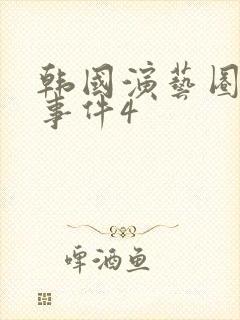 韩國演藝圈
事件4
啤酒鱼